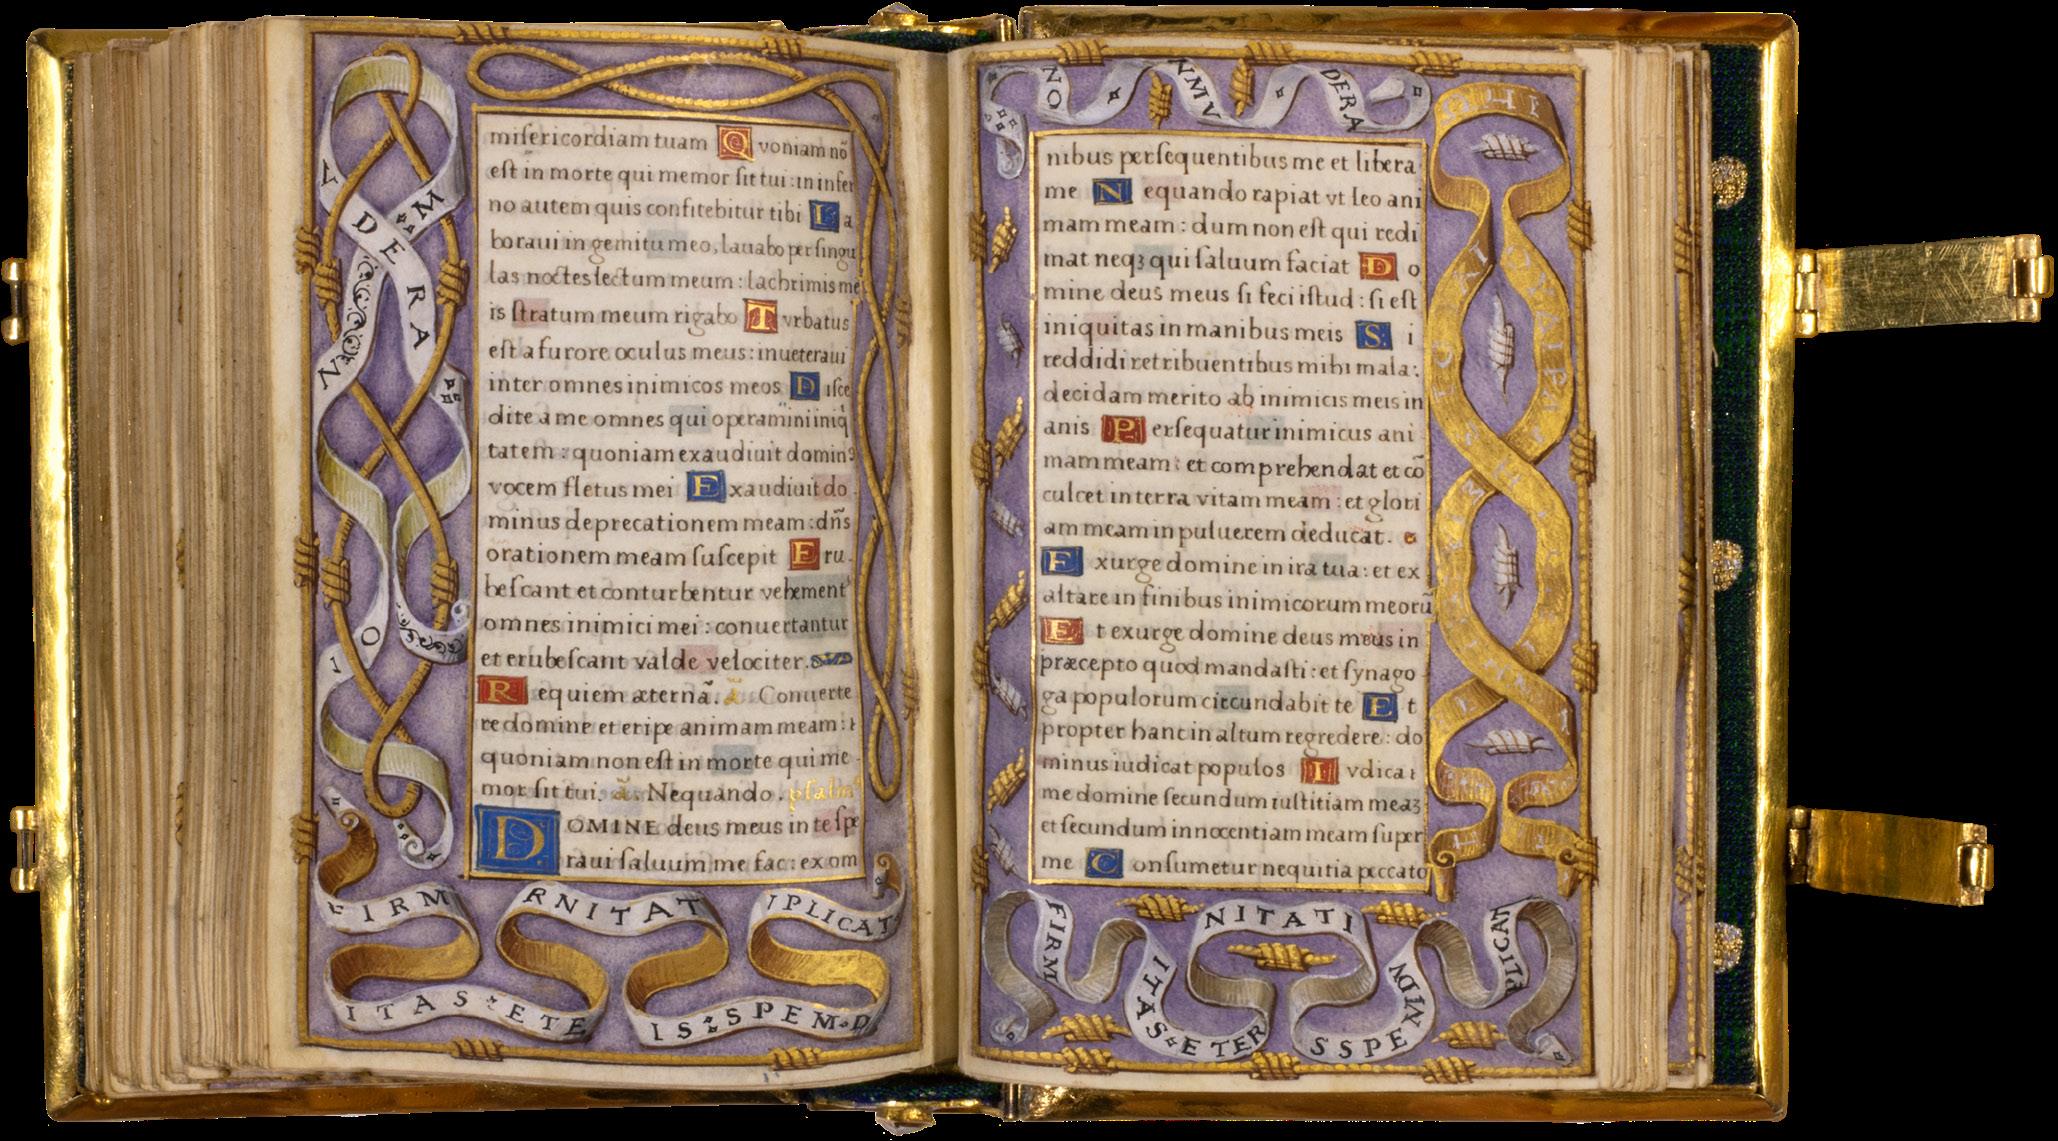 V
DERA
M
N
O
I
misericordiam tuam Q voniam nõ
est in morte qui memor sit tui : in infer
no autem quis confitebitur tibi L a
boraui in gemitu meo, lauabo per singu
las noctes lectum meum : lachrimis me
is stratum meum rigabo T vrbatus
est a furore oculus meus : inueteraui
inter omnes inimicos meos D isce
dite a me omnes qui operamini iniq̃
tatem : quoniam exaudiuit dominꝰ
vocem fletus mei E xaudiuit do
minus deprecationem meam : dñs
orationem meam suscepit E ru
bescant et conturbentur vehement
omnes inimici mei : conuertantur
et erubescant valde velociter.
R equiem æternã. ã. Conuerte
re domine et eripe animam meam :
quoniam non est in morte qui me
mor sit tui. ã. Nequando. psalmꝰ
DOMINE deus meus in te spe
raui saluum me fac : ex om
FIRM RNITAT IPLICAT
ITAS ETE IS SPEM D
NO NMV DERA
nibus persequentibus me et libera
me N equando rapiat vt leo ani
mam meam : dum non est qui redi
mat neqꝫ qui saluum faciat D o
mine deus meus si feci istud : si est
iniquitas in manibus meis S i
reddidi retribuentibus mihi mala :
decidam merito ab inimicis meis in
anis P ersequatur inimicus ani
mam meam : et comprehendat et cõ
culcet in terra vitam meam : et glori
am meam in puluerem deducat.
E xurge domine in ira tua : et ex
altare in finibus inimicorum meorũ
E t exurge domine deus meus in
præcepto quod mandasti : et synago
ga populorum circundabit te E t
propter hanc in altum regredere : do
minus iudicat populos I vdica
me domine secundum iustitiam meaꝫ
et secundum innocentiam meam super
me C onsumetur nequitia peccato
FIRM ITAS ETER NITATI SSPEM MDN PLICAT